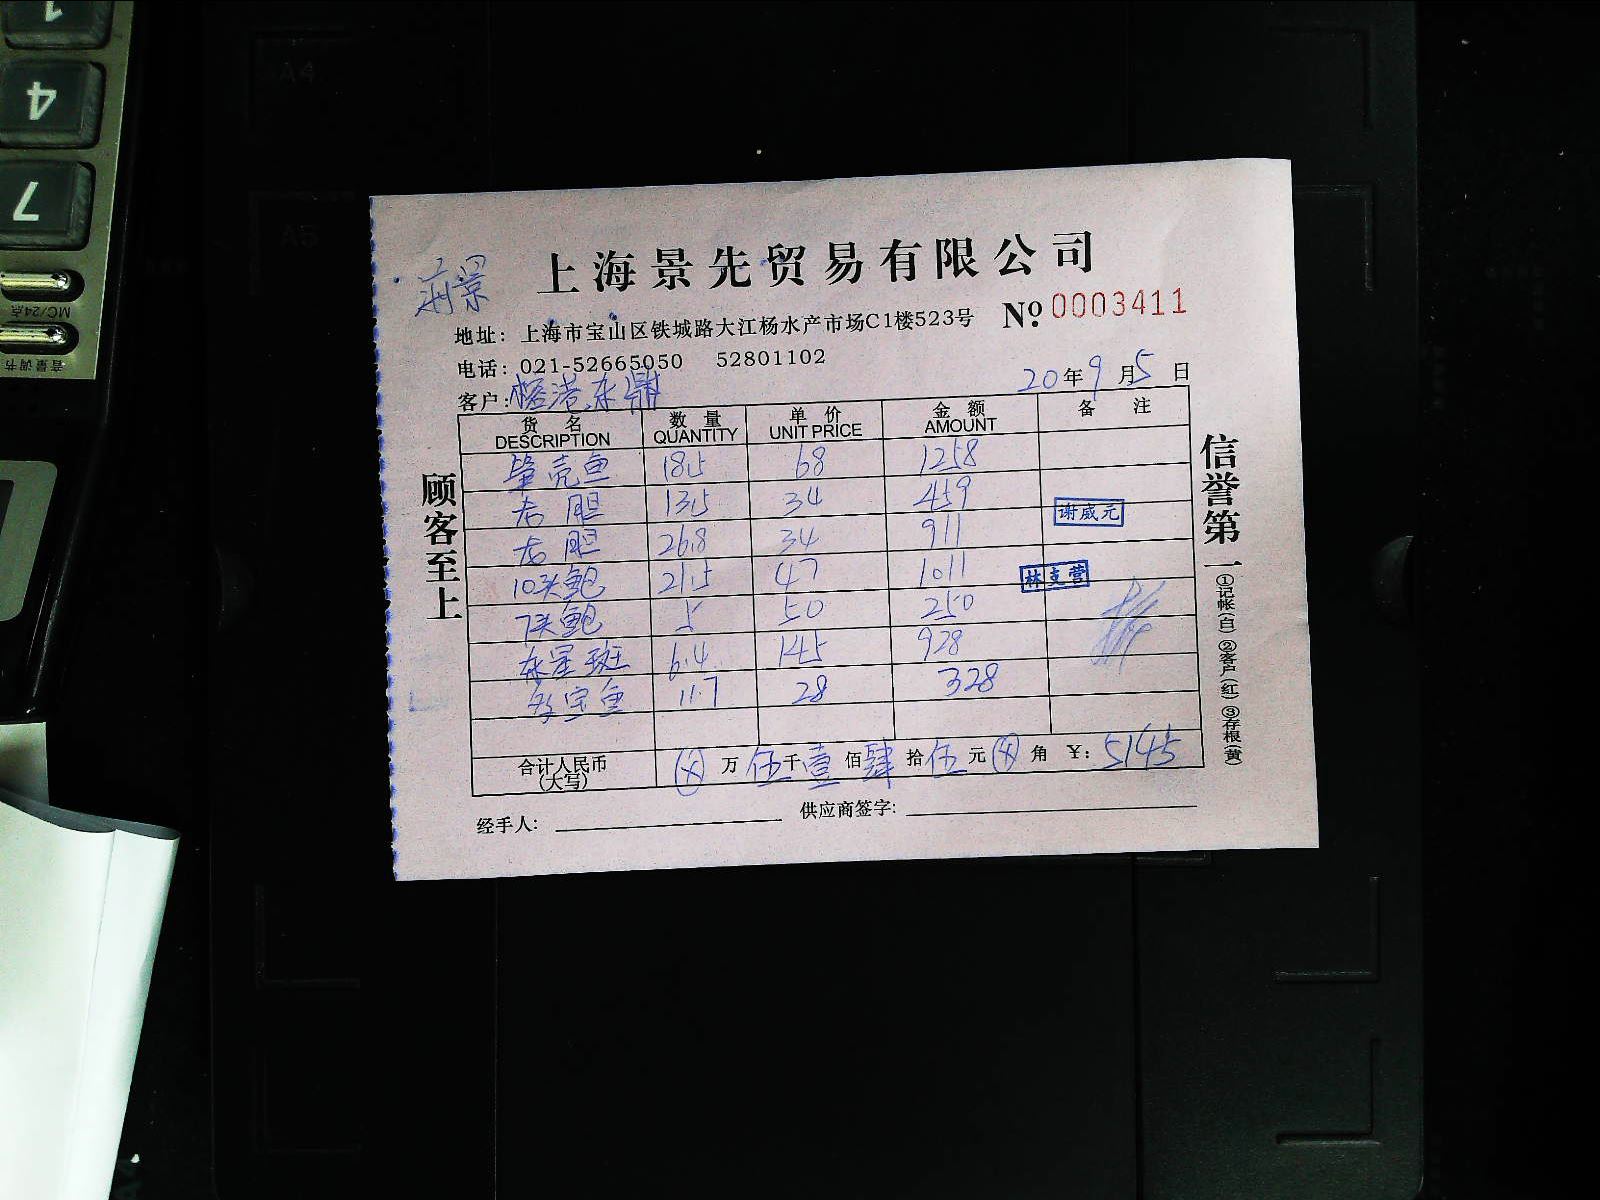 1
4
7
MC/24点
音量调节
A4
A5
上海景先贸易有限公司
地址: 上海市宝山区铁城路大江杨水产市场C1楼523号
No 0003411
电话: 021-52665050 52801102
客户: 港东鼎
20年9月5日
货名 数量 单价 金额 备注
DESCRIPTION QUANTITY UNIT PRICE AMOUNT
笋壳鱼 18.5 68 1258
右胆 13.5 34 459
右胆 26.8 34 911
谢威元
10头鲍 21.5 47 1011
林支营
7头鲍 5 50 250
东星斑 6.4 145 928
多宝鱼 11.7 28 328
合计人民币 万伍千壹佰肆拾伍元 角 ¥: 5145
(大写)
经手人:
供应商签字:
顾客至上
信誉第一
①记帐(白) ②客户(红) ③存根(黄)